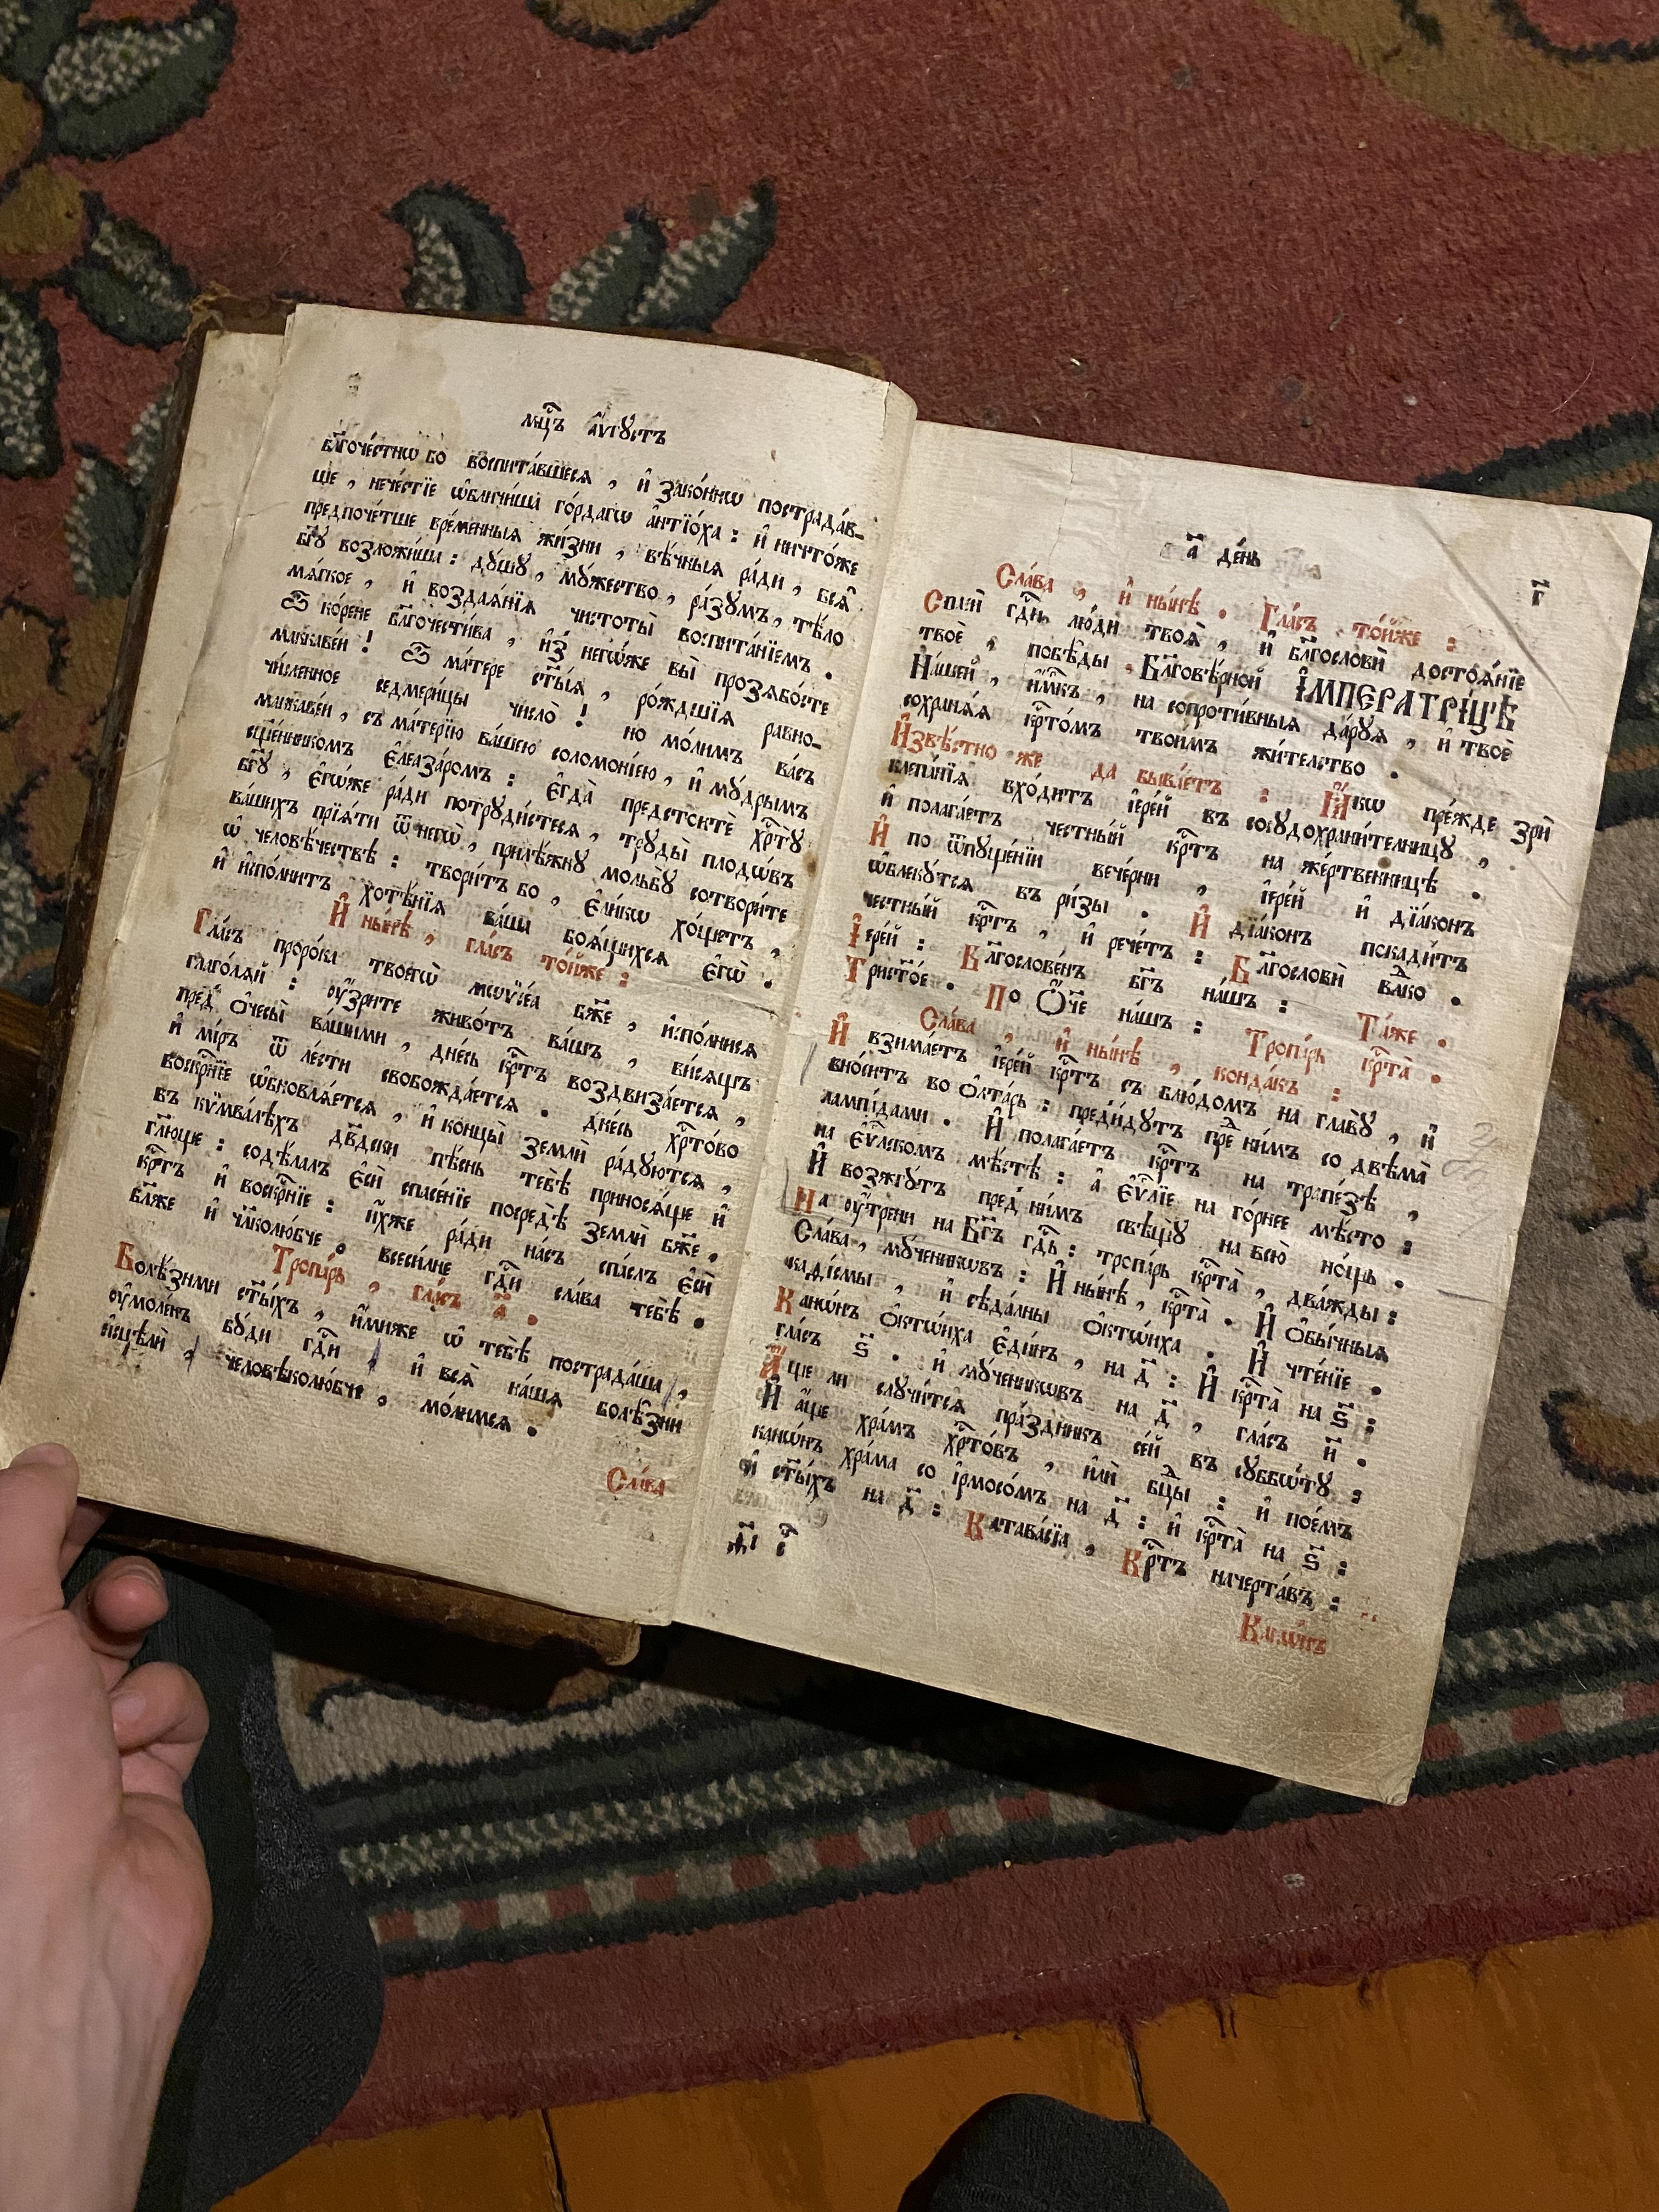 мц҃ъ а҆́ѵгꙋстъ
бл҃гоче́стнѡ бо воспита́вшесѧ , и҆ зако́ннѡ пострада́в-
ше , нече́стїе ѡ҆бличи́ша го́рдагѡ а҆нтїо́ха : и҆ ничто́же
предпоче́тше вре́менныѧ жи́зни , вѣ́чныѧ ра́ди , всѧ̑
бг҃ꙋ возложи́ша : дꙋ́шꙋ , мꙋ́жество , ра́зꙋмъ , тѣ́ло
мѧ́гкое , и҆ воздаѧ́нїѧ чистоты̀ воспита́нїемъ .
Ѿ ко́рене бл҃гочести́ва , и҆з̾ негѡ́же вы̀ прозѧбо́сте
маккаве́и ! Ѿ ма́тере ст҃ы́ѧ , ро́ждшїѧ равно-
чи́сленное седмери́цы число̀ ! но мо́лимъ ва́съ
маккаве́и , съ ма́терїю ва́шею соломоні́ею , и҆ мꙋ́дрымъ
сщ҃е́нникомъ є҆леаза́ромъ : є҆гда̀ предстоитѐ хрⷭ҇тꙋ̀
бг҃ꙋ , є҆гѡ́же ра́ди потрꙋди́стесѧ , трꙋды̀ плодѡ́въ
ва́шихъ прїѧ́ти ѿ негѡ̀ , прилѣ́жнꙋ мольбꙋ̀ сотвори́те
ѡ҆ человѣ́чествѣ : твори́тъ бо , є҆ли́кѡ хо́щетъ ,
и҆ и҆спо́лнитъ хотѣ́нїѧ ва̑ша боѧ́щихсѧ є҆гѡ̀ .
И҆ ны́нѣ , гла́съ то́йже :
Гла́съ проро́ка твоегѡ̀ мѡѷсе́а бж҃е , и҆спо́лнисѧ
глаго́лѧй : ᲂу҆́зрите живо́тъ ва́шъ , ви́сѧщъ
пред̾ ѻ҆чесы̀ ва́шими , дне́сь крⷭ҇тъ воздвиза́етсѧ ,
и҆ мі́ръ ѿ ле́сти свобожда́етсѧ . дне́сь хрⷭ҇то́во
воскрⷭ҇нїе ѡ҆бновлѧ́етсѧ , и҆ концы̀ землѝ ра́дꙋютсѧ ,
въ кѷмва́лѣхъ дв҃дски пѣ́снь тебѣ̀ приносѧ́ще и҆
гл҃юще : содѣ́лалъ є҆сѝ спасе́нїе посредѣ̀ землѝ бж҃е ,
крⷭ҇тъ и҆ воскрⷭ҇нїе : и҆́хже ра́ди на́съ спа́слъ є҆сѝ
бл҃же и҆ чл҃колю́бче , всеси́лне гдⷭ҇и сла́ва тебѣ̀ .
Тропа́рь , гла́съ а҃ .
Болѣ́зньми ст҃ы́хъ , и҆́миже ѡ҆ тебѣ̀ пострада́ша ,
ᲂу҆моле́нъ бꙋ́ди гдⷭ҇и , и҆ всѧ̑ на́шѧ болѣ̑зни
и҆сцѣлѝ , человѣколю́бче , мо́лимсѧ .
Сла́ва
а҃ де́нь
г҃
Сла́ва , и҆ ны́нѣ . Гла́съ то́йже :
Спасѝ гдⷭ҇и лю́ди твоѧ̑ , и҆ бл҃гословѝ достоѧ́нїе
твоѐ , побѣ́ды Бл҃говѣ́рной І҆МПЕРАТРІ́ЦѢ
На́шей , и҆́м҃къ , на сопроти̑вныѧ да́рꙋѧ , и҆ твоѐ
сохранѧ́ѧ крⷭ҇то́мъ твои́мъ жи́тельство .
И҆звѣ́стно же да быва́етъ : Ꙗ҆́кѡ пре́жде зрѝ
клепа́нїѧ вхо́дитъ і҆ере́й въ сосꙋдохрани́телницꙋ ,
и҆ полага́етъ честны́й крⷭ҇тъ на же́ртвенницѣ .
И҆ по ѿпꙋще́нїи вече́рни , і҆ере́й и҆ дїа́конъ
ѡ҆блекꙋ́тсѧ въ ри̑зы . И҆ дїа́конъ пскади́тъ
честны́й крⷭ҇тъ , и҆ рече́тъ : Бл҃гословѝ влⷣко .
І҆ере́й : Бл҃гослове́нъ бг҃ъ на́шъ : Та́же .
Трист҃о́е . По Ѻ҆́ч҃е на́шъ : Тропа́рь крⷭ҇та̀ .
Сла́ва , и҆ ны́нѣ , конда́къ :
И҆ взима́етъ і҆ере́й крⷭ҇тъ съ блю́домъ на главꙋ̀ , и҆
вно́ситъ во ѻ҆лта́рь : пред̾и́дꙋтъ преⷣ ни́мъ со двѣма̀
лампі́дами . И҆ полага́етъ крⷭ҇тъ на трапе́зѣ ,
на є҆ѵⷢ҇лскомъ мѣ́стѣ : а҆ є҆ѵⷢ҇лїе на го́рнее мѣ́сто :
И҆ возжгꙋ́тъ пред̾ ни́мъ свѣщꙋ̀ на всю̀ но́щь .
На ᲂу҆́трени на Бг҃ъ гдⷭ҇ь : тропа́рь крⷭ҇та̀ , два́жды :
Сла́ва , мꙋ́ченикѡвъ : И҆ ны́нѣ , крⷭ҇та̀ . И҆ ѻ҆бы̑чныѧ
кадїсмы̀ , и҆ сѣда́лны ѻ҆ктѡ́иха . И҆ чте́нїе .
Канѡ́нъ ѻ҆ктѡ́иха є҆ди́нъ , на д҃ : И҆ крⷭ҇та̀ на ѕ҃ :
гла́съ ѕ҃ . и҆ мꙋ́ченикѡвъ на д҃ , гла́съ и҃ .
А҆́ще ли слꙋчи́тсѧ пра́здникъ се́й въ сꙋббѡ́тꙋ :
И҆ а҆́ще хра́мъ хрⷭ҇то́въ , и҆лѝ бцⷣы : и҆ пое́мъ
канѡ́нъ хра́ма со і҆рмосо́мъ на д҃ : и҆ крⷭ҇та̀ на ѕ҃ :
и҆ ст҃ы́хъ на д҃ : Катава́сїа , Крⷭ҇тъ начерта́въ :
г҃
Канѡ́нъ